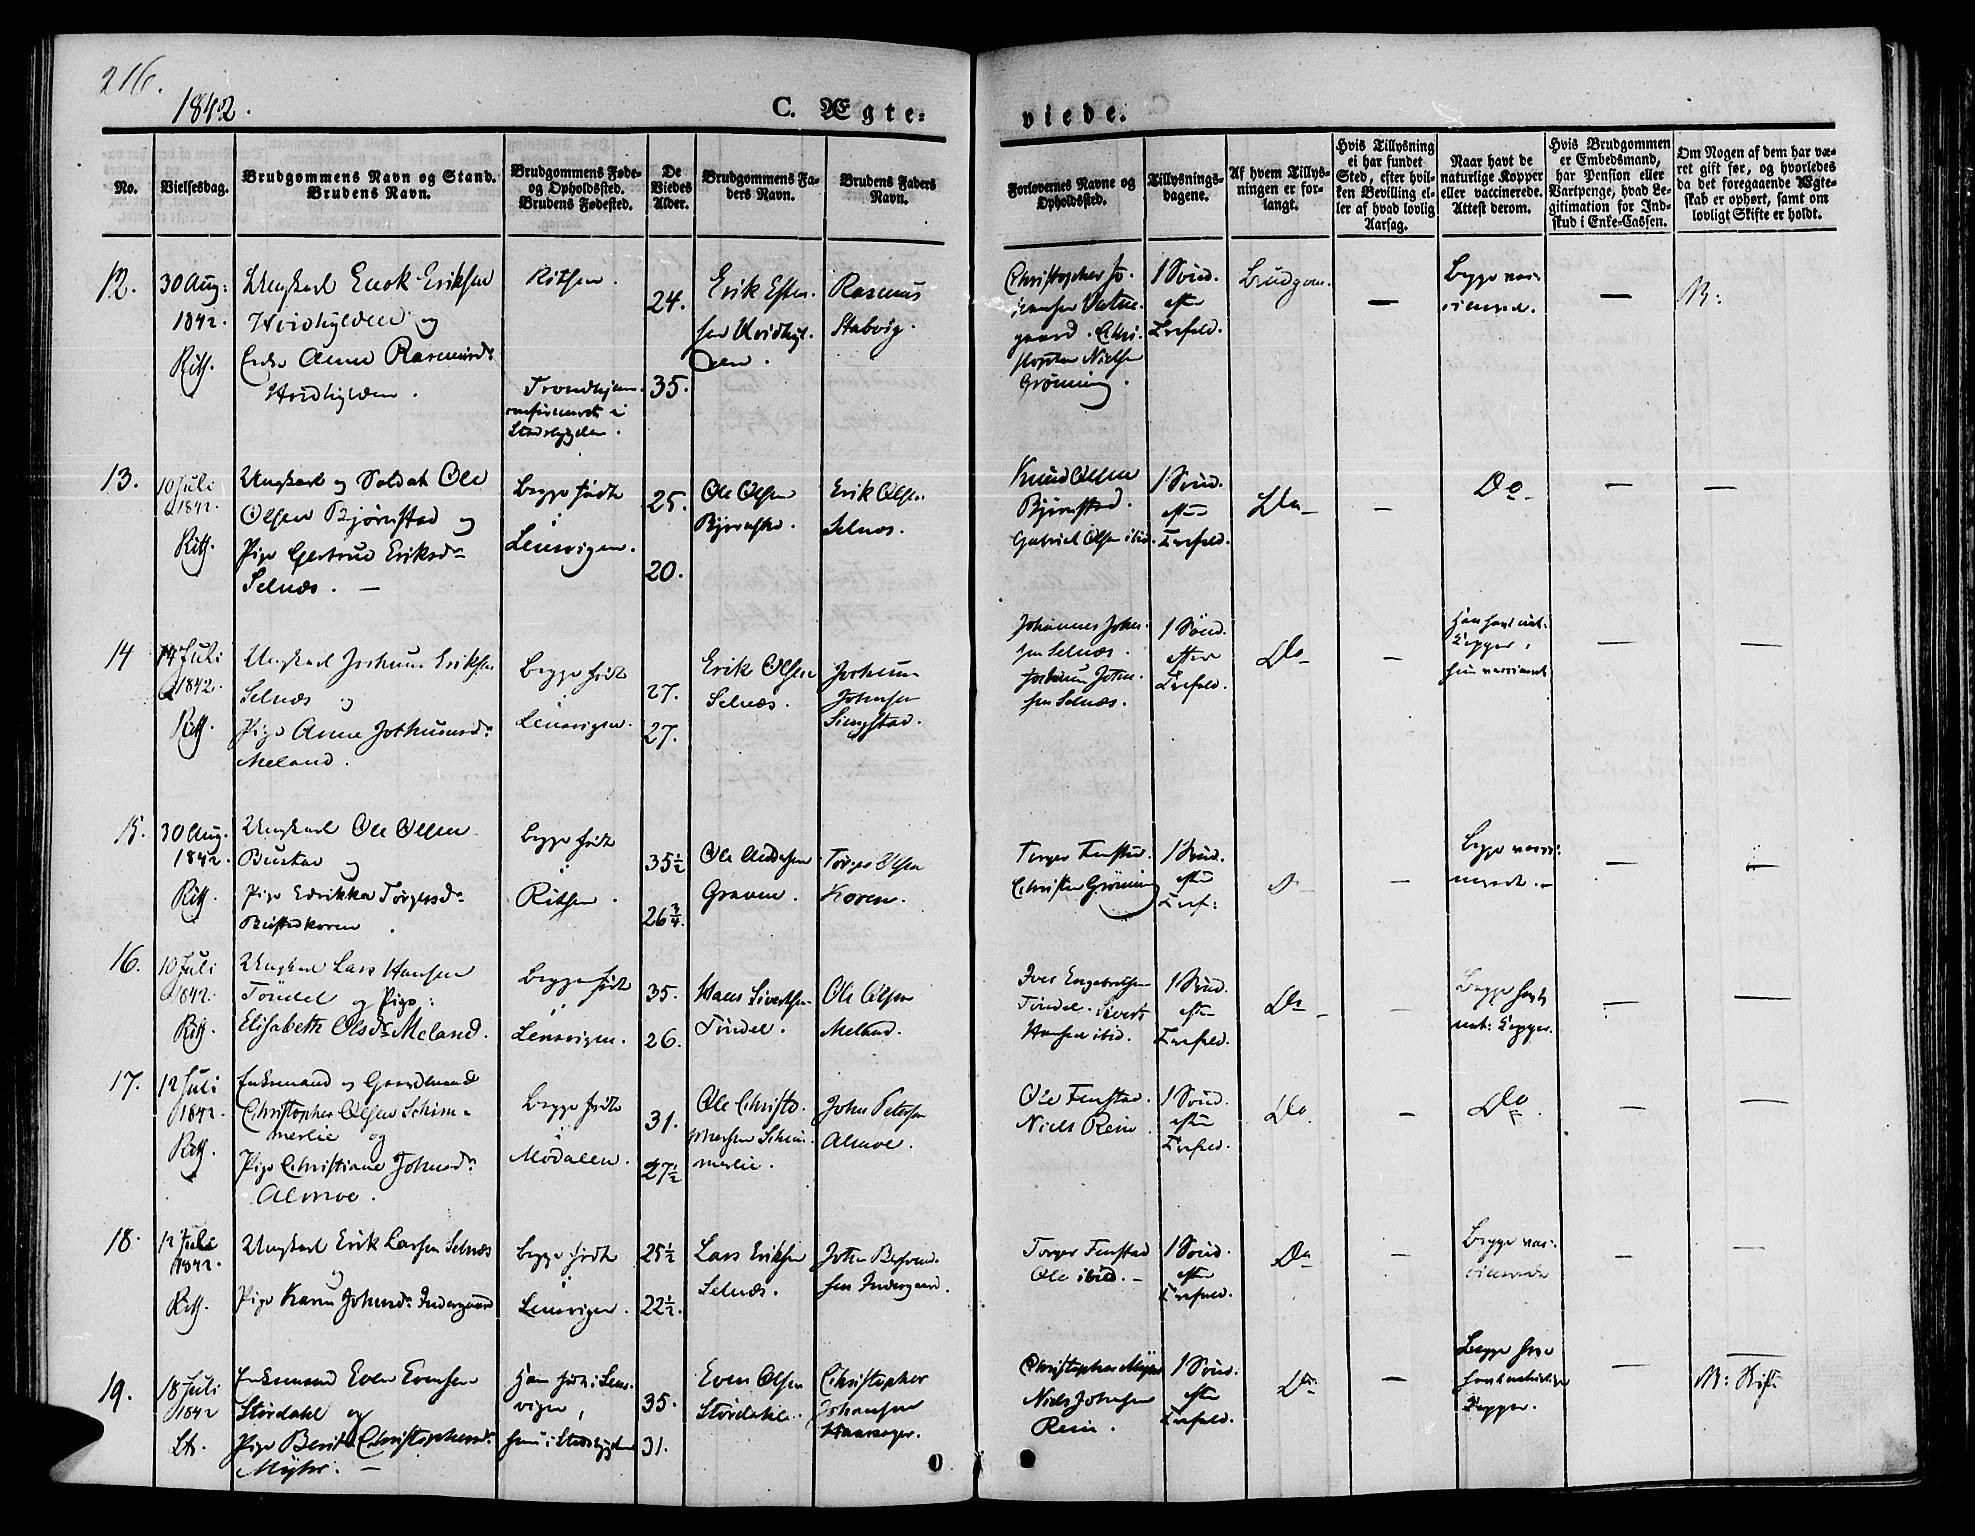 216.
1842.
C. Ægte-
viede.
No.
Vielsesdag.
Brudgommens Navn og Stand.
Brudens Navn.
Brudgommens Føde-
og Opholdssted.
Brudens Fødested.
De
Viedes
Alder.
Brudgommens Fa-
ders Navn.
Brudens Faders
Navn.
Forlovernes Navne og
Opholdssted.
Tillysnings-
dagene.
Af hvem Tillys-
ningen er for-
langt.
Hvis Tillysning
ei har fundet
Sted, efter hvil-
ken Bevilling el-
ler af hvad lovlig
Aarsag.
Naar havt de
naturlige Kopper
eller vaccinerede.
Attest derom.
Hvis Brudgommen
er Embedsmand,
har Pension eller
Vartpenge, hvad Le-
gitimation for Ind-
skud i Enke-Cassen.
Om Nogen af dem har væ-
ret gift før, og hvorledes
da det foregaaende Ægte-
skab er ophørt, samt om
lovligt Skifte er holdt.
12.
30 Aug:
1842.
Rith.
Ungkarl Enok Eriksen
Hvidhylden og
Enke Anne Rasmusd:
Hvidhylden.
Rithen.
Trondhjem
i
Stadsbygden.
24.
35.
Erik
sen Hvidhyl-
den.
Rasmus
Stabvig.
Christopher Jo-
gaard. Chri-
stopher Nielsen
Grønning.
1 Sønd.
efter
Trefold.
Brudgom.
Begge vac-
cinered.
—
13.
10 Juli
1842.
Rith.
Ungkarl og Soldat Ole
Olsen Bjørnstad og
Pige Gjertrud Eriksd:
Selnæs. —
Begge fødte
i
Lensvigen.
25.
20.
Ole Olsen
Bjørnstad.
Erik Olsen
Selnæs.
Knud Olsen
Bjørnstad.
Gabriel Olsen ibid.
1 Sønd.
efter
Trefold.
Do
—
Do
—
—
14
14 Juli
1842.
Rith.
Ungkarl Jochum Eriksen
Selnæs og
Pige Anne Jochumsd:
Meland.
Begge fødte
i
Lensvigen.
27.
27.
Erik Olsen
Selnæs.
Jochum
Johnsen
Singstad.
Johannes John-
sen Selnæs.
Jochum John-
sen Selnæs.
1 Sønd.
efter
Trefold.
Do
—
Han havt nat:
Kopper,
hun vaccineret
—
—
15.
30 Aug.
1842.
Rith.
Ungkarl Ole Olsen
Bustad og
Pige Edrikka Torgersd:
Bustadkoren.
Begge fødte
i
Rithen.
35½
26¾.
Ole Andersen
Graven.
Torger Olsen
Koren.
Torger Fenstad.
Christen Grønning
1 Sønd.
efter
Tref:
D—
—
Begge vacci-
nerede. —
—
—
16.
10 Juli
1842.
Rith.
Ungkarl Lars Hansen
Tøndel og Pige:
Elisabeth Olsd: Meland.
Begge fødte
i
Lensvigen.
35.
26.
Hans Sivertsen
Tøndel.
Ole Olsen
Meland.
Iver Engebretsen
Tøndel. Sivert
Hansen ibid.
1 Sønd.
efter
Trefold.
Do
—
Begge havt
nat: Kopper.
—
—
17.
12 Juli
1842.
Rith.
Enkemand og Gaardmand
Christopher Olsen Schim-
merlie og
Pige Christiane Johnsd:
Almoe.
Begge fødte
i
Modalen.
31.
27½
Ole Christo-
phersen Schim-
merlie.
John Petersen
Almoe.
Ole Fenstad.
Niels Rein
1 Sønd.
efter
Trefold.
Do.
—
Do.
—
—
18.
12 Juli
1842.
Rith.
Ungkarl Erik Larsen Selnæs
og
Pige Karen Johnsd: Indergaard
Begge fødte
i
Lensvigen.
25½
22½.
Lars Eriksen
Selnæs.
John
sen Indergaard.
Torger Fenstad
Ole ibid. —
1 Sønd.
efter
Trefold.
Do
—
Begge vac-
cinerede
—
—
19.
18 Juli
1842
Enkemand Even Evensen
Størdahl og
Pige Berit Christophersd:
Myhr. —
Han født i Lens-
vigen,
hun i Stadsbygden
35.
31.
Even Olsen
Størdahl.
Christopher
Johansen
Christopher Myhr
Niels Johnsen
Rein.
1 Sønd.
efter
Trefold.
Do
—
Begge
havt naturlige
Kopper.
—